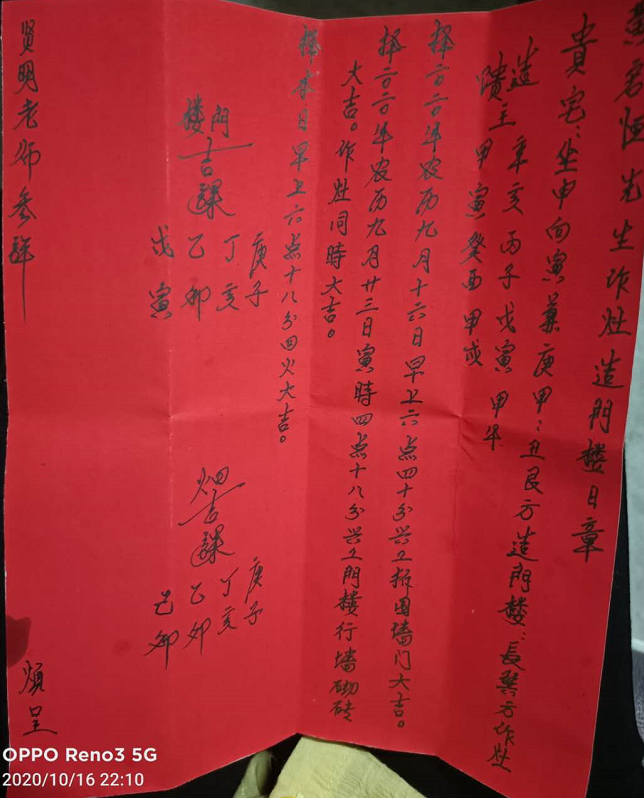 先生作灶造門楼日章
貴宅：坐申向寅兼庚甲：丑艮方造門楼：長巽方作灶
造 辛亥 丙子 戊寅 甲午
主 甲寅 癸酉 甲戌
择二〇二〇年农历九月十六日早上六点四十分兴工拆围墙门大吉。
择二〇二〇年农历九月廿三日寅時四点十八分兴工門楼行墙砌砖
大吉。作灶同時大吉。
择本日早上六点十八分回火大吉。
門楼吉課
庚子
丁亥
乙卯
戊寅
吉課
庚子
丁亥
乙卯
己卯
贤明老师参详
烦呈
OPPO Reno3 5G
2020/10/16 22:10